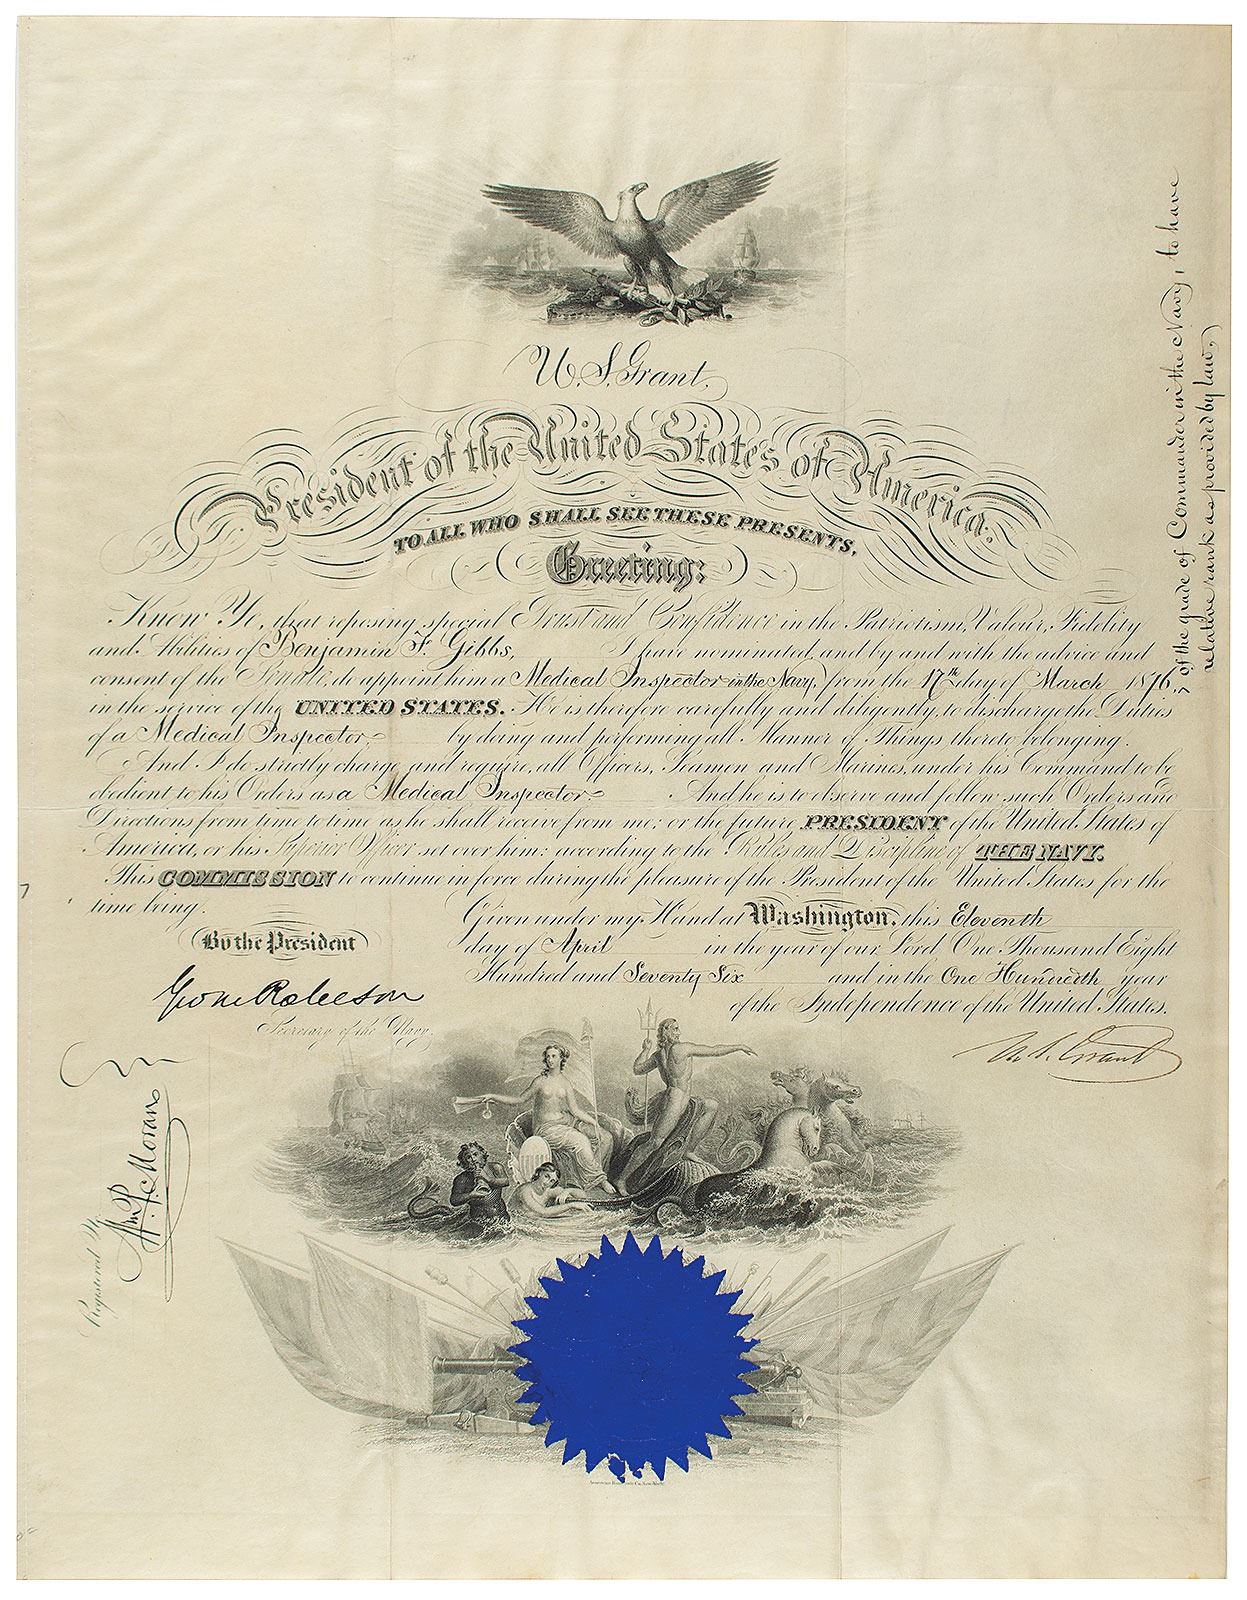 U. S. Grant,
President of the United States of America.
TO ALL WHO SHALL SEE THESE PRESENTS,
Greeting:
Know Ye, that reposing special Trust and Confidence in the Patriotism, Valour, Fidelity
and Abilities of Benjamin F. Gibbs, I have nominated, and by and with the advice and
consent of the Senate, do appoint him a Medical Inspector in the Navy, from the 17th day of March 1876,
in the service of the UNITED STATES. He is therefore carefully and diligently to discharge the Duties
of a Medical Inspector, by doing and performing all Manner of Things thereto belonging.
And I do strictly charge and require, all Officers, Seamen and Marines, under his Command to be
obedient to his Orders as a Medical Inspector. And he is to observe and follow such Orders and
Directions from time to time as he shall receive from me: or the future PRESIDENT of the United States of
America, or his Superior Officer set over him: according to the Rules and Discipline of THE NAVY.
This COMMISSION to continue in force during the pleasure of the President of the United States for the
time being.
Given under my Hand at Washington, this Eleventh
day of April in the year of our Lord One Thousand Eight
Hundred and Seventy Six and in the One Hundredth year
of the Independence of the United States.
By the President
Geo M Robeson
Secretary of the Navy.
U. S. Grant
Registered
Wm P. Moran
of the grade of Commander in the Navy, to have
relative rank as provided by law,